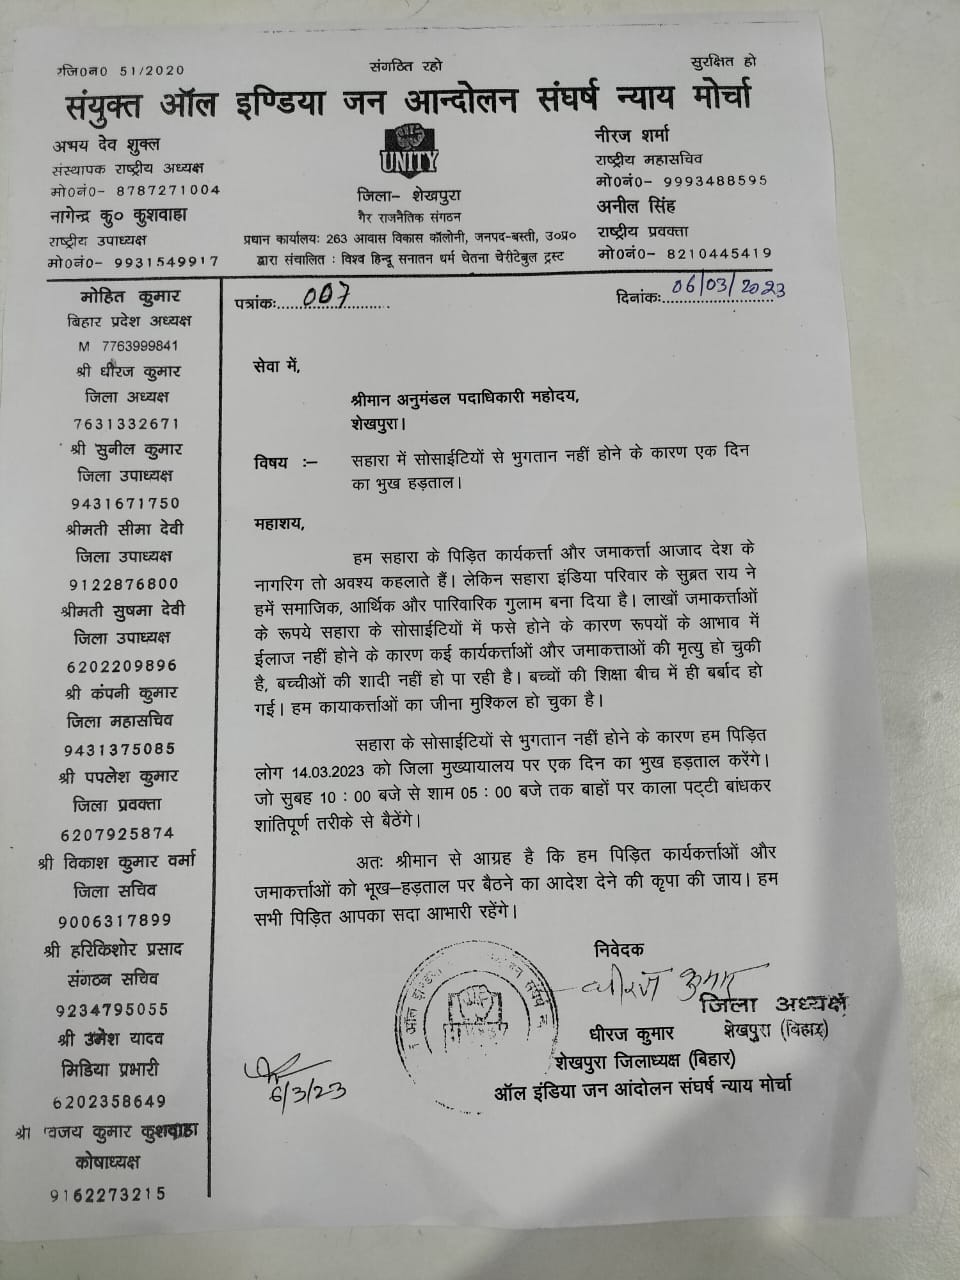 रजि0न0 51/2020
संगठित रहो
सुरक्षित हो
संयुक्त ऑल इण्डिया जन आन्दोलन संघर्ष न्याय मोर्चा
अभय देव शुक्ल
संस्थापक राष्ट्रीय अध्यक्ष
मो0नं0- 8787271004
नागेन्द्र कु० कुशवाहा
राष्ट्रीय उपाध्यक्ष
मो0नं0- 9931549917
UNITY
जिला- शेखपुरा
गैर राजनैतिक संगठन
प्रधान कार्यालयः 263 आवास विकास कॉलोनी, जनपद-बस्ती, उ०प्र०
द्वारा संचालित : विश्व हिन्दू सनातन धर्म चेतना चेरीटेबुल ट्रस्ट
नीरज शर्मा
राष्ट्रीय महासचिव
मो0नं0- 9993488595
अनील सिंह
राष्ट्रीय प्रवक्ता
मो0नं0- 8210445419
मोहित कुमार
बिहार प्रदेश अध्यक्ष
M 7763999841
श्री धीरज कुमार
जिला अध्यक्ष
7631332671
श्री सुनील कुमार
जिला उपाध्यक्ष
9431671750
श्रीमती सीमा देवी
जिला उपाध्यक्ष
9122876800
श्रीमती सुषमा देवी
जिला उपाध्यक्ष
6202209896
श्री कंपनी कुमार
जिला महासचिव
9431375085
श्री पपलेश कुमार
जिला प्रवक्ता
6207925874
श्री विकाश कुमार वर्मा
जिला सचिव
9006317899
श्री हरिकिशोर प्रसाद
संगठन सचिव
9234795055
श्री उमेश यादव
मिडिया प्रभारी
6202358649
श्री विजय कुमार कुशवाहा
कोषाध्यक्ष
9162273215
पत्रांकः.....007.....
दिनांकः.....06/03/2023
सेवा में,
श्रीमान अनुमंडल पदाधिकारी महोदय,
शेखपुरा।
विषय :– सहारा में सोसाईटियों से भुगतान नहीं होने के कारण एक दिन
का भुख हड़ताल।
महाशय,
हम सहारा के पिड़ित कार्यकर्त्ता और जमाकर्त्ता आजाद देश के
नागरिग तो अवश्य कहलाते हैं। लेकिन सहारा इंडिया परिवार के सुब्रत राय ने
हमें समाजिक, आर्थिक और पारिवारिक गुलाम बना दिया है। लाखों जमाकर्त्ताओं
के रूपये सहारा के सोसाईटियों में फसे होने के कारण रूपयों के आभाव में
ईलाज नहीं होने के कारण कई कार्यकर्त्ताओं और जमाकत्ताओं की मृत्यु हो चुकी
है, बच्चीओं की शादी नहीं हो पा रही है। बच्चों की शिक्षा बीच में ही बर्बाद हो
गई। हम कायाकर्त्ताओं का जीना मुश्किल हो चुका है।
सहारा के सोसाईटियों से भुगतान नहीं होने के कारण हम पिड़ित
लोग 14.03.2023 को जिला मुख्यायालय पर एक दिन का भुख हड़ताल करेंगे।
जो सुबह 10 : 00 बजे से शाम 05 : 00 बजे तक बाहों पर काला पट्टी बांधकर
शांतिपूर्ण तरीके से बैठेंगे।
अतः श्रीमान से आग्रह है कि हम पिड़ित कार्यकर्त्ताओं और
जमाकर्त्ताओं को भूख–हड़ताल पर बैठने का आदेश देने की कृपा की जाय। हम
सभी पिड़ित आपका सदा आभारी रहेंगे।
निवेदक
धीरज कुमार
जिला अध्यक्ष
शेखपुरा (बिहार)
धीरज कुमार
शेखपुरा जिलाध्यक्ष (बिहार)
ऑल इंडिया जन आंदोलन संघर्ष न्याय मोर्चा
6/3/23